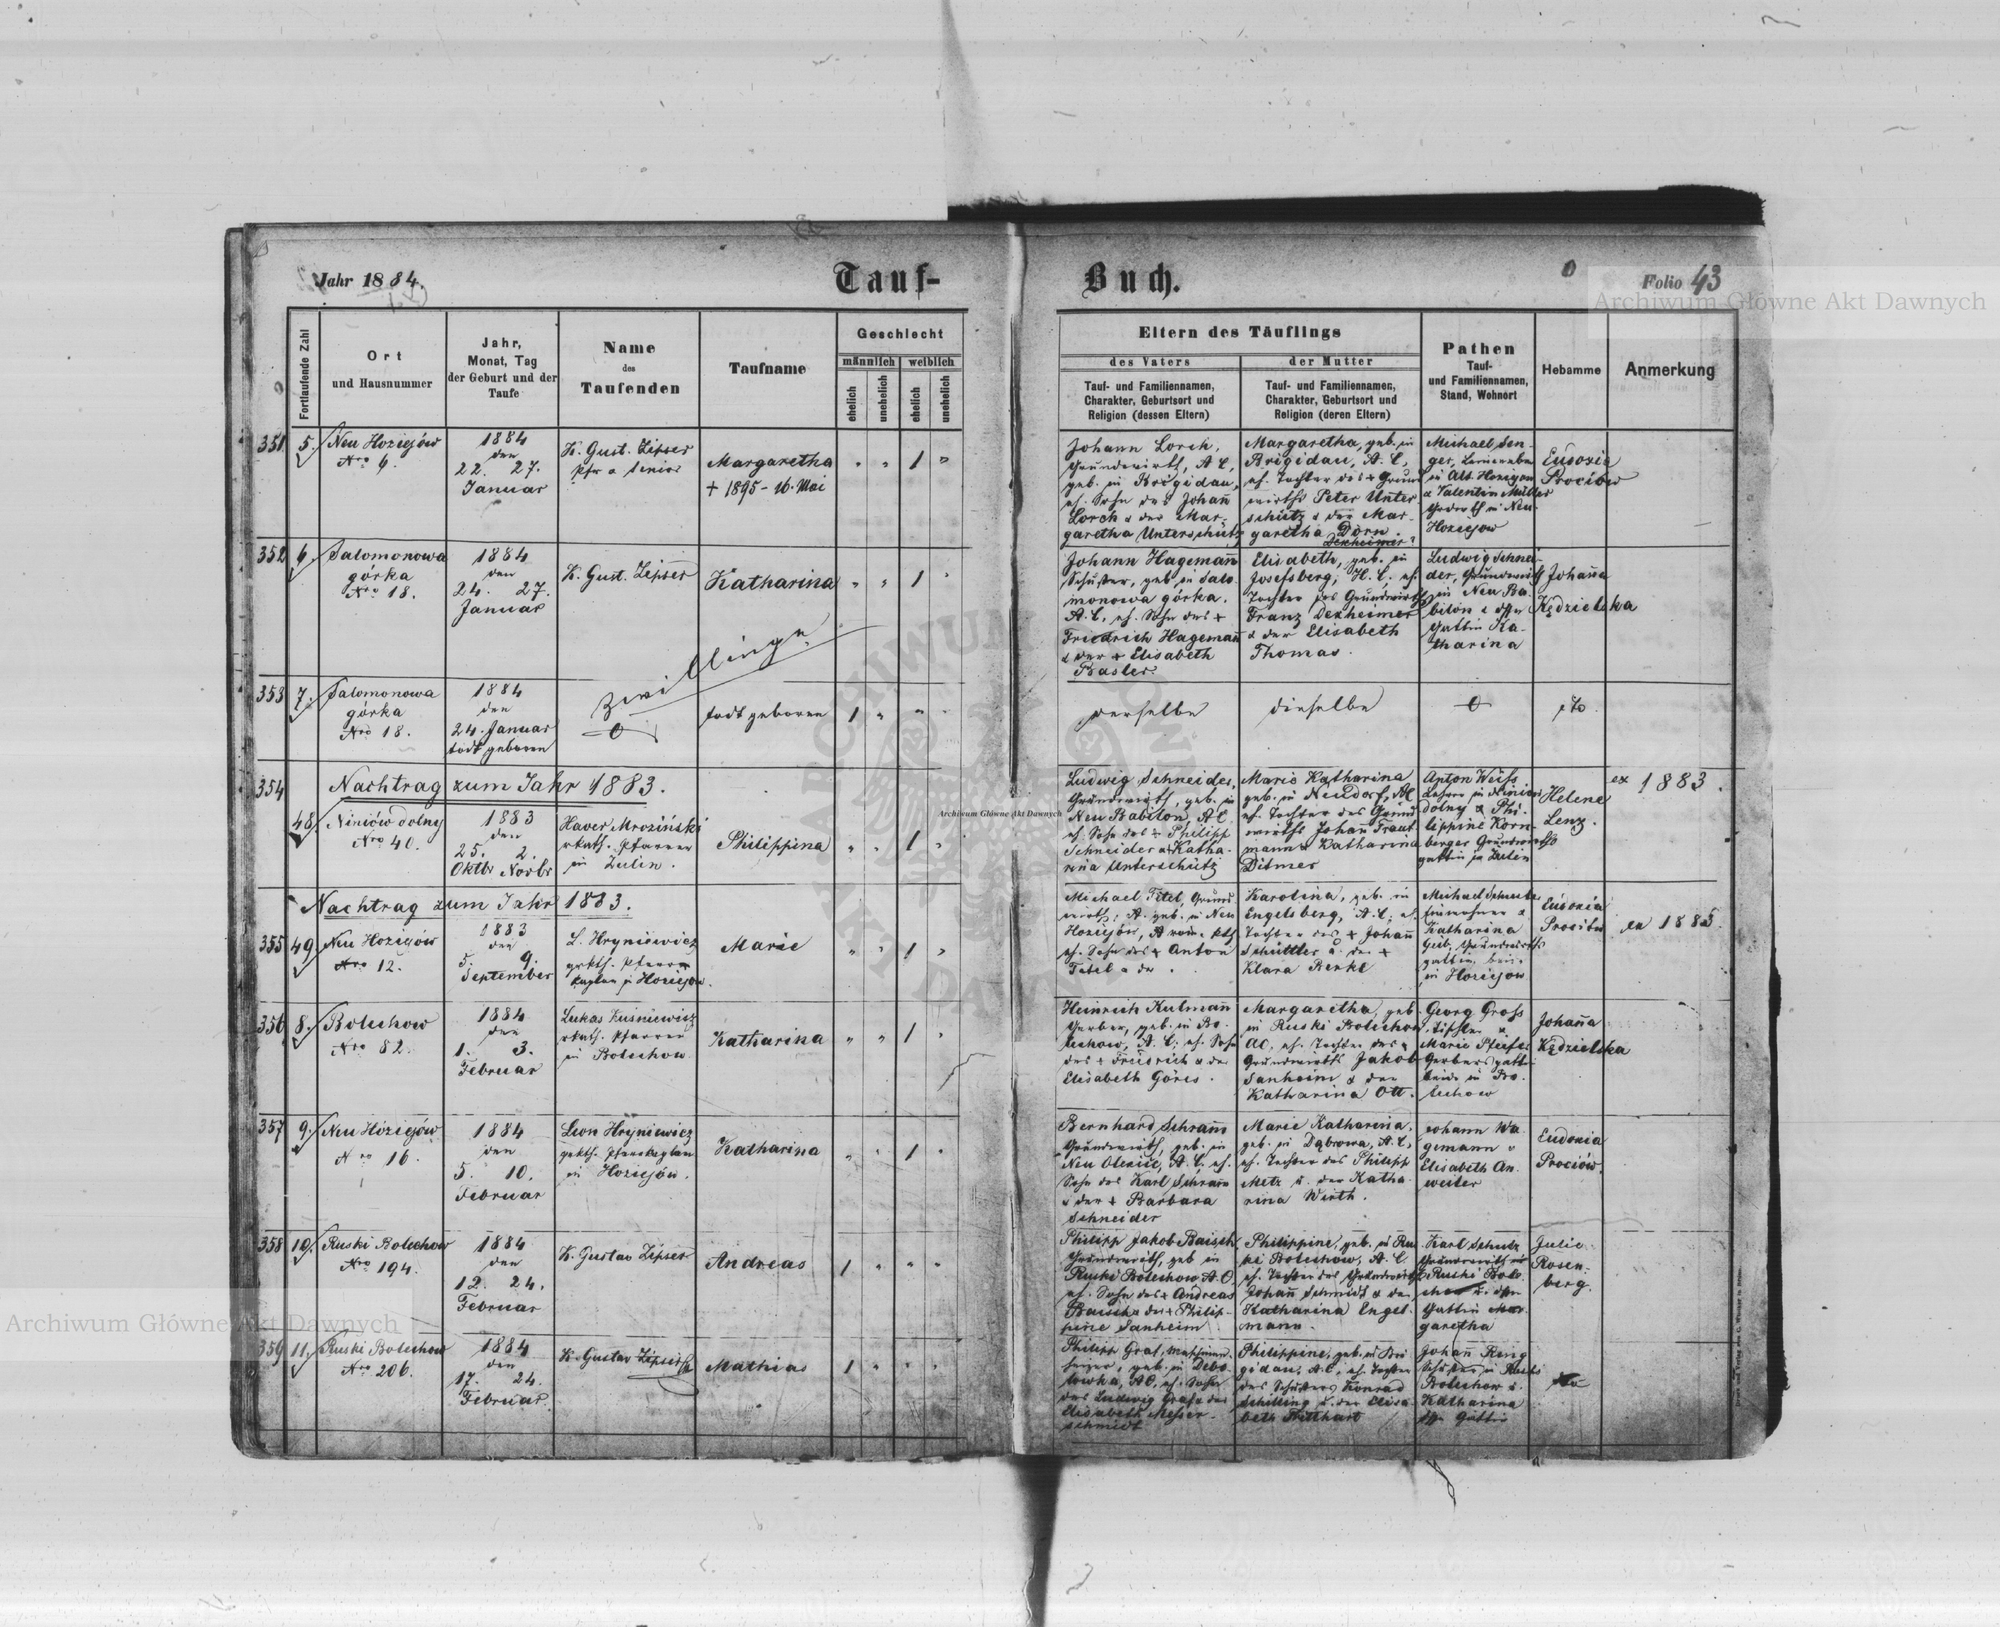 Jahr 1884.
Tauf-
Buch.
Folio 43
Fortlaufende Zahl
Ort
und Hausnummer
Jahr,
Monat, Tag
der Geburt und der
Taufe
Name
des
Taufenden
Taufname
Geschlecht
männlich
weiblich
ehelich
unehelich
ehelich
unehelich
Eltern des Täuflings
des Vaters
Tauf- und Familiennamen,
Charakter, Geburtsort und
Religion (dessen Eltern)
der Mutter
Tauf- und Familiennamen,
Charakter, Geburtsort und
Religion (deren Eltern)
Pathen
Tauf-
und Familiennamen,
Stand, Wohnort
Hebamme
Anmerkung
351
5.
Neu Hoziejów
Nro 4.
1884
den
22. 27.
Januar
K. Gust. Zipser
Pfr u Senior
Margaretha
+ 1895 - 16. Mai
" " 1 "
Johann Lorch,
Grundwirth, A.C.,
geb. in Brigidau,
eh. Sohn des Johañ
Lorch & der Mar-
garetha Unterschütz
Margaretha, geb. in
Brigidau, A.C.,
eh. Tochter des + Grund
wirths Peter Unter
schütz & der Mar-
garetha Dorn
Dexheimer?
Michael Sen-
ger,
in Alt Hoziejow
& Valentin Müller
in Neu
Hoziejow
Eudoxia
Prociów
352
6.
Salomonowa
górka
Nro 18.
1884
den
24. 27.
Januar
K. Gust. Zipser
Katharina
" " 1 "
Johann Hagemañ
Schuster, geb. in Salo
monowa górka.
A.C., eh. Sohn des +
Friedrich Hagemañ
& der + Elisabeth
Basler.
Elisabeth, geb. in
Josefsberg, H.C., eh.
Tochter des Grundwirths
Franz Dexheimer
& der Elisabeth
Thomas.
Ludwig Schnei-
der, Grundwirth
in Neu Ba-
bilon &
Gattin Ka-
tharina
Johaña
Kędzielska
Zwillinge
353
7.
Salomonowa
górka
Nro 18.
1884
den
24. Januar
todt geboren
0
todt geboren
1 " " "
derselbe
dieselbe
0
dto.
354
Nachtrag zum Jahr 1883.
48.
Niniów dolny
Nro 40.
1883
den
25. 2.
Oktbr Novbr
Xaver Mroziński
rkath. Pfarrer
in Zulin.
Philippina
" " 1 "
Ludwig Schneider,
Grundwirth, geb. in
Neu Babilon, A.C.
eh. Sohn des + Philipp
Schneider & Katha-
rina Unterschütz
Marie Katharina
geb. in Neudorf, AC
eh. Tochter des Grund
wirths Johañ Traut-
mann & Katharina
Ditmer
Anton Weiss
Lehrer in Niniow
dolny & Phi-
lippine Korn-
berger Grundwirths
gattin in Zulin
Helene
Lenz.
ex 1883.
Nachtrag zum Jahr 1883.
355
49
Neu Hoziejów
Nro 12.
1883
den
5. 9.
September
L. Hryniewicz
grkth. Pfarr
kaplan in Hoziejow.
Marie
" " 1 "
Michael Titel, Grund
wirth, A. geb. in Neu
Hoziejów,
eh. Sohn des + Anton
Titel & der .
Karolina, geb. in
Engelsberg, A.C., eh.
Tochter des + Johañ
Schüttler u. der +
Klara Berkl
Michael
Katharina
Grundwirths
gattin, beide
in Hoziejow
Eudoxia
ex 1883.
356
8.
Bolechow
Nro 82.
1884
den
1. 3.
Februar
Lukas Kuśniewicz
rkath. Pfarrer
in Bolechow
Katharina
" " 1 "
Heinrich Kulmañ
Gerber, geb. in Bo-
lechow, A.C., eh. Sohn
des + Friedrich & der
Elisabeth Göres.
Margaretha, geb
in Ruski Bolechow
AC, eh. Tochter des +
Grundwirths Jakob
Sanheim & der
Katharina Ott.
Georg Gross
Marie Pfeifer
Gerbers gattin
beide in Bo-
lechow
Johaña
Kędzielska
357
9.
Neu Hoziejów
Nro 16.
1884
den
5. 10.
Februar
Leon Hryniewicz
grkth. Pfarrkaplan
in Hoziejów.
Katharina
" " 1 "
Bernhard Schram
Grundwirth, geb. in
Neu Olexice, A.C. eh.
Sohn des Karl Schram
& der + Barbara
Schneider
Marie Katharina,
geb. in Dąbrowa, A.C.,
eh. Tochter des Philipp
Metz u. der Katha-
rina Wirth.
Johann Wa-
gemann &
Elisabeth An-
weiler
Eudoxia
Prociów.
358
10.
Ruski Bolechow
Nro 194.
1884
den
12. 24.
Februar
K. Gustav Zipser
Andreas
1 " " "
Philipp Jakob Baisch
Grundwirth, geb in
Ruski Bolechow A.C.
eh. Sohn des + Andreas
Baisch & der + Philip-
pine Sanheim
Philippine, geb. in Rus
ki Bolechow, A.C.
eh. Tochter des Grundwirths
Johañ Schmidt & der
Katharina Engel-
mann.
Karl Schulz
Grundwirth in
Ruski Bole-
chow u.
Gattin Mar-
garetha
Julie
Rosen-
berg.
359
11.
Ruski Bolechow
Nro 206.
1884
den
17. 24.
Februar
K. Gustav Zipser
Mathias
1 " " "
Philipp Graf,
geb. in Debo-
lowka, AC, eh. Sohn
des Ludwig Graf & der
Elisabeth Messer-
schmidt
Philippine, geb. in Bri
gidau, AC, eh. Tochter
des Schusters Konrad
Schilling u. der Elisa
beth
Johañ Ring
Schuster in Ruski
Bolechow u.
Katharina
Gattin
Archiwum Główne Akt Dawnych
Archiwum Główne Akt Dawnych
Archiwum Główne Akt Dawnych